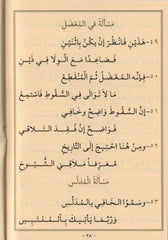 مَسْأَلَةٌ فِي الْمُعْضَلِ
٤٩- هَذَيْنِ فَانْظُرْ إِنْ يَكُنْ بِاثْنَيْنِ
فَصَاعِدًا مَعَ الْوِلَا فِي ذَيْنِ
٥٠- فَإِنَّهُ الْمُعْضَلُ ثُمَّ الْمُنْقَطِعْ
مَا لَا تَوَالَى فِي السُّقُوطِ فَاسْتَمِعْ
٥١- إِنَّ السُّقُوطَ وَاضِحٌ وَخَافِي
فَوَاضِحٌ إِنْ فُقِدَ التَّلَاقِي
٥٢- وَمِنْ هُنَا احْتِيجَ إِلَى التَّارِيخِ
مُعَرِّفًا مَلَاقِيَ الشُّيُوخِ
مَسْأَلَةُ الْمُدَلَّسِ
٥٣- وَسَمَّوُا الْخَافِي بِالْمُدَلَّسِ
وَرُبَّمَا يَأْتِيكَ بِالْمُلْتَبِسِ
-٣٨-